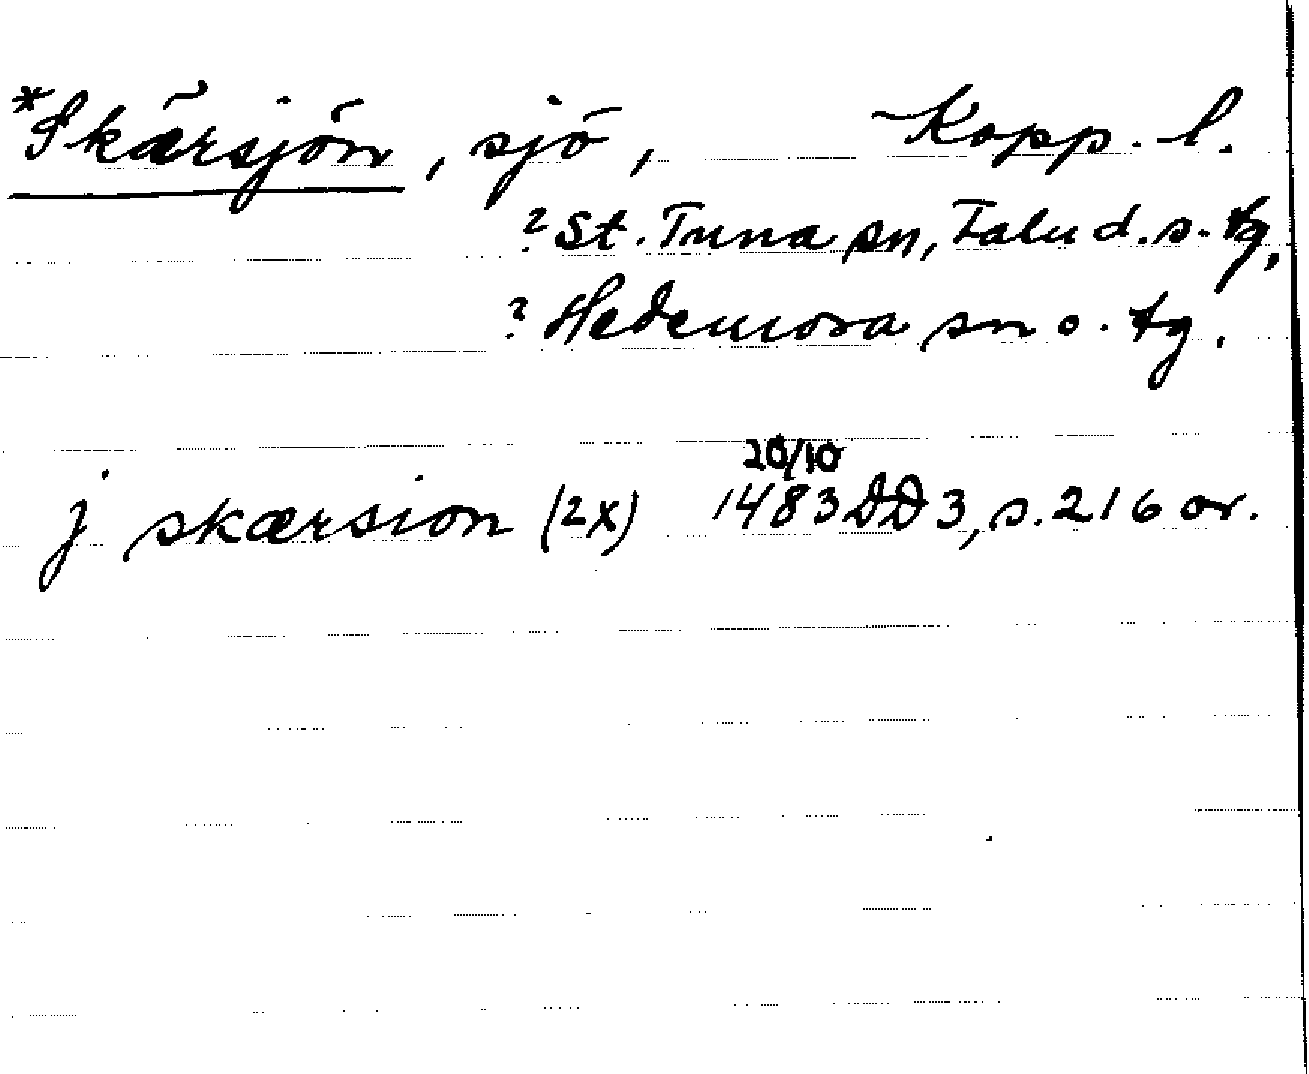 *Skärsjön, sjö, Kopp. l.
? St. Tuna sn, Falu d.s. tg,
? Hedemora sn o. tg.
20/10
j skærsion (2x) 1483 DD 3, s. 216 or.